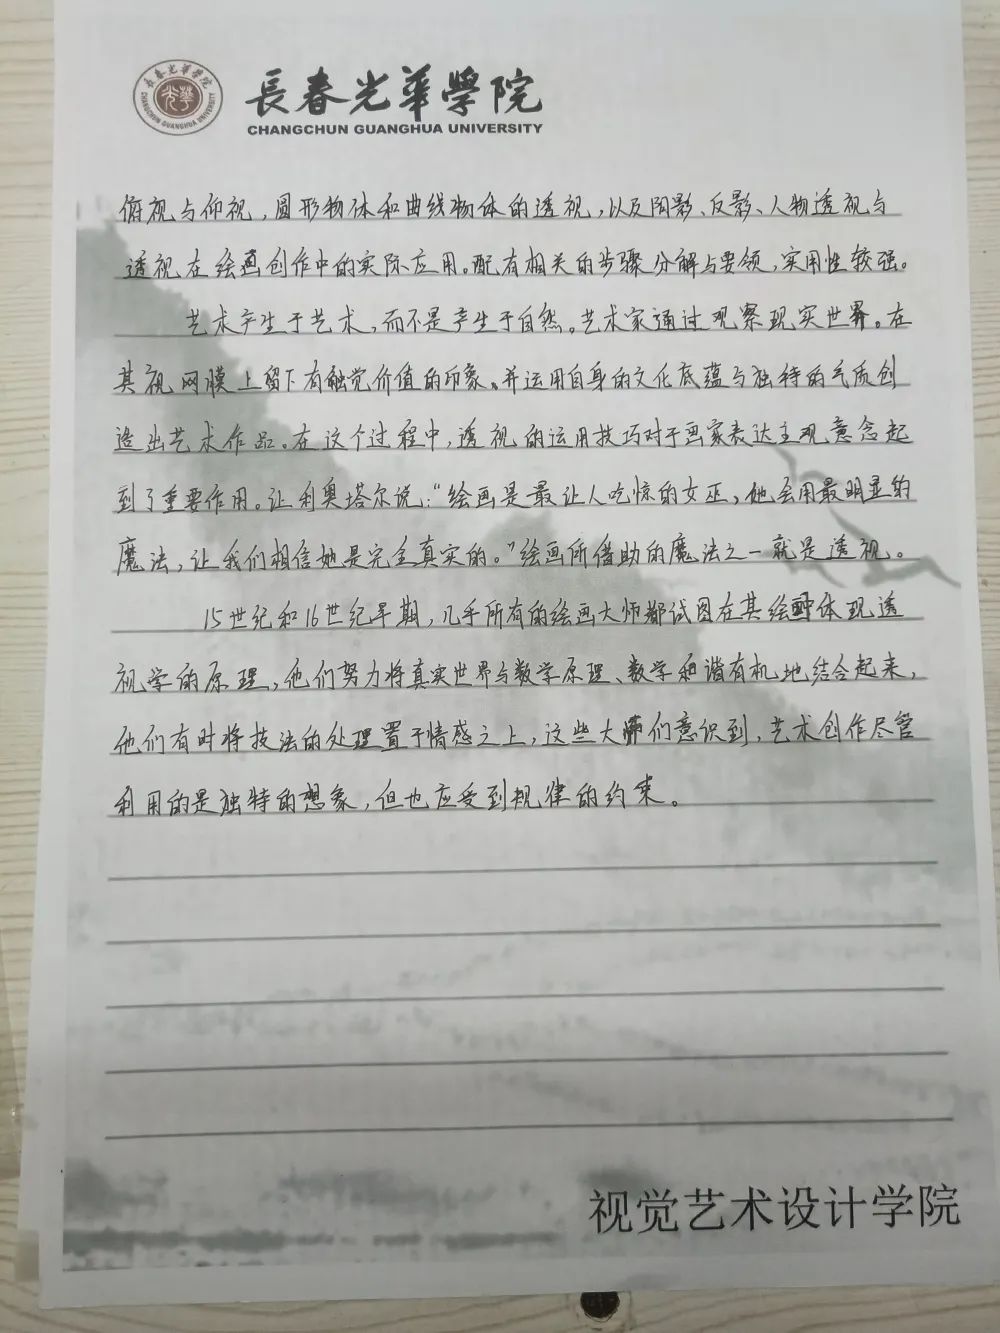 長春光華學院
CHANGCHUN GUANGHUA UNIVERSITY
長春光華學院
光華
CHANGCHUN GUANGHUA UNIVERSITY
俯视与仰视，圆形物体和曲线物体的透视，以及阴影、反影、人物透视与
透视在绘画创作中的实际应用。配有相关的步骤分解与要领，实用性较强。
艺术产生于艺术，而不是产生于自然。艺术家通过观察现实世界。在
其视网膜上留下有触觉价值的印象。并运用自身的文化底蕴与独特的气质创
造出艺术作品。在这个过程中，透视的运用技巧对于画家表达主观意念起
到了重要作用。让利奥塔尔说：“绘画是最让人吃惊的女巫，她会用最明显的
魔法，让我们相信她是完全真实的。”绘画所借助的魔法之一就是透视。
15世纪和16世纪早期，几乎所有的绘画大师都试图在其绘画中体现透
视学的原理，他们努力将真实世界与数学原理、数学和谐有机地结合起来，
他们有时将技法的处理置于情感之上，这些大师们意识到，艺术创作尽管
利用的是独特的想象，但也应受到规律的约束。
视觉艺术设计学院